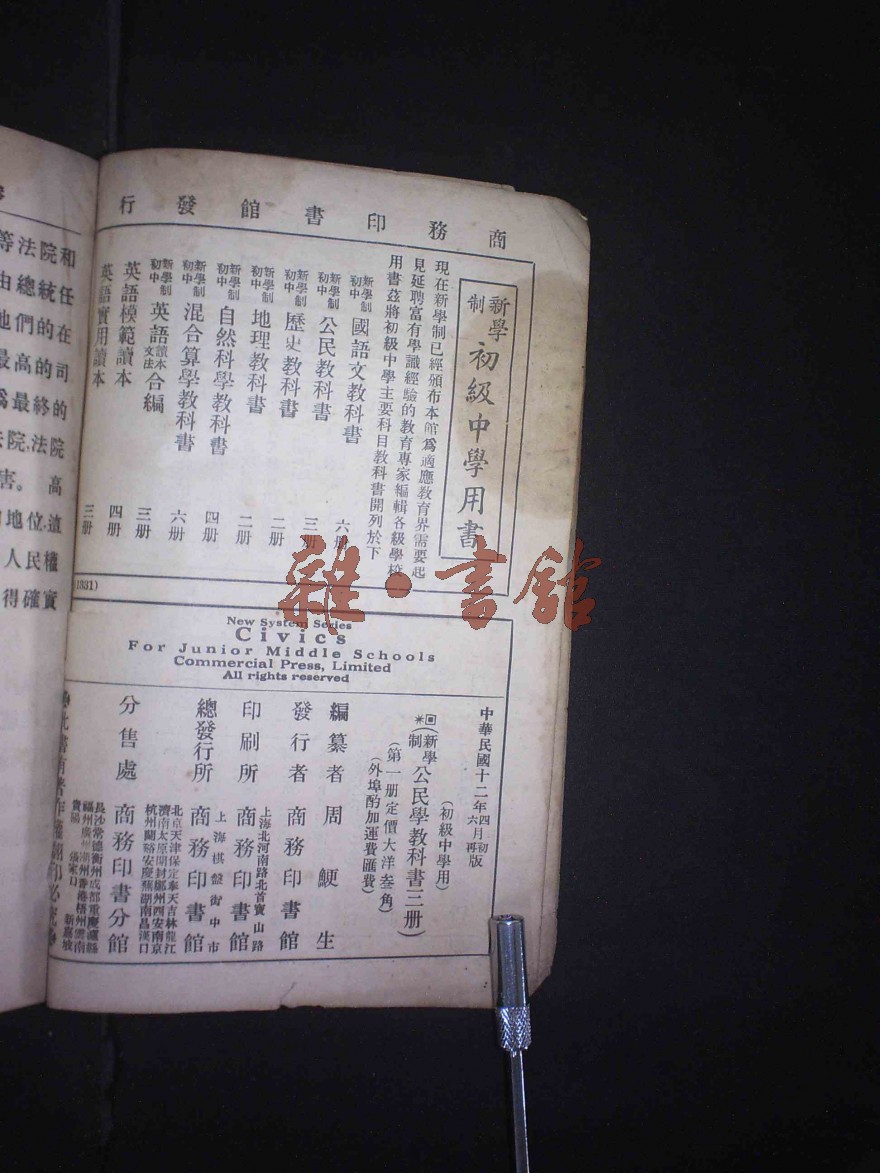 商務印書館發行
新學制 初級中學用書
現在新學制已經頒布本館爲適應教育界需要起
見延聘富有學識經驗的教育專家編輯各級學校
用書茲將初級中學主要科目教科書開列於下
新學制初中 國語文教科書 六册
新學制初中 公民教科書 三册
新學制初中 歷史教科書 二册
新學制初中 地理教科書 二册
新學制初中 自然科學教科書 四册
新學制初中 混合算學教科書 六册
新學制初中 英語讀本文法合編 三册
英語模範讀本 四册
英語實用讀本 三册
(1331)
雜·書館
New System Series
Civics
For Junior Middle Schools
Commercial Press, Limited
All rights reserved
中華民國十二年四月初版
六月再版
(初級中學用)
(新學制公民學教科書三册)
(第一册定價大洋叁角)
(外埠酌加運費匯費)
編纂者 周鯁生
發行者 商務印書館
上海北河南路北首寶山路
印刷所 商務印書館
上海棋盤街中市
總發行所 商務印書館
北京天津保定奉天吉林龍江
濟南太原開封鄭州西安南京
杭州蘭谿安慶蕪湖南昌漢口
分售處 商務印書分館
長沙常德衡州成都重慶瀘縣
福州廣州潮州香港梧州雲南
貴陽 張家口 新嘉坡
此書有著作權翻印必究
等法院和
由總統任
他們的在
最高的司
爲最終的
法院,法院
害。 高
地位,這
人民權
得確實